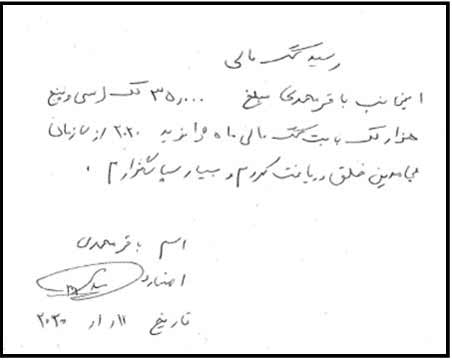 رسید کمک مالی
اینجانب باقر محمدی مبلغ ۳۵,۰۰۰ لک (سی و پنج
هزار لک بابت کمک مالی ماه فوریه ۲۰۲۰ از سازمان
مجاهدین خلق دریافت کردم و بسیار سپاسگزارم.
اسم باقر محمدی
امضاء
تاریخ ۲۰۲۰